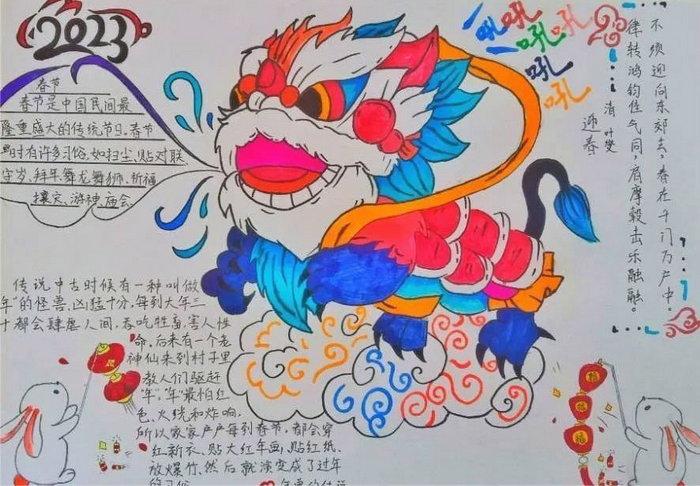 2023
春节
春节是中国民间最
隆重盛大的传统节日,春节
时有许多习俗,如扫尘、贴对联
守岁、拜年、舞龙舞狮、祈福
攘灾、游神、庙会。
吼吼
吼吼
吼
迎春
清 叶燮
律转鸿钧佳气同,肩摩毂击乐融融。
不须迎向东郊去,春在千门万户中。
传说中古时候有一种叫做
年"的怪兽,凶猛十分,每到大年三
十都会肆虐人间,吞吃牲畜,害人性
命,后来有一个老
神仙来到村子里
教人们驱赶
"年","年"最怕红
色、火烧和炸响,
所以家家户户每到春节,都会穿
红新衣、贴大红年画,贴红纸、
放爆竹,然后就演变成了过年
的习俗